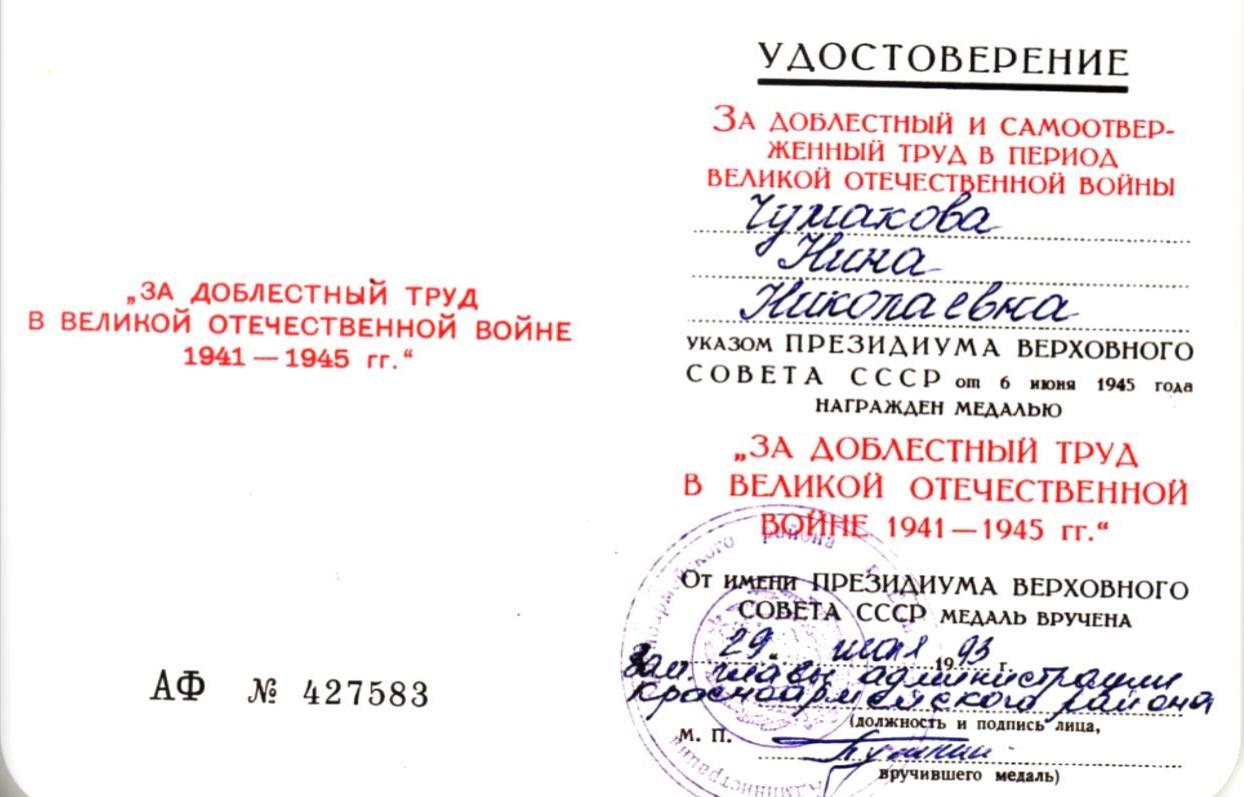 „ЗА ДОБЛЕСТНЫЙ ТРУД
В ВЕЛИКОЙ ОТЕЧЕСТВЕННОЙ ВОЙНЕ
1941 — 1945 гг.“
АФ № 427583
УДОСТОВЕРЕНИЕ
ЗА ДОБЛЕСТНЫЙ И САМООТВЕР-
ЖЕННЫЙ ТРУД В ПЕРИОД
ВЕЛИКОЙ ОТЕЧЕСТВЕННОЙ ВОЙНЫ
Чумакова
Нина
Николаевна
УКАЗОМ ПРЕЗИДИУМА ВЕРХОВНОГО
СОВЕТА СССР от 6 июня 1945 года
НАГРАЖДЕН МЕДАЛЬЮ
„ЗА ДОБЛЕСТНЫЙ ТРУД
В ВЕЛИКОЙ ОТЕЧЕСТВЕННОЙ
ВОЙНЕ 1941 — 1945 гг.“
От имени ПРЕЗИДИУМА ВЕРХОВНОГО
СОВЕТА СССР МЕДАЛЬ ВРУЧЕНА
29 1993 г.
Зам. главы администрации
Красноармейского района
(должность и подпись лица,
М. П.
вручившего медаль)
района
Администрация